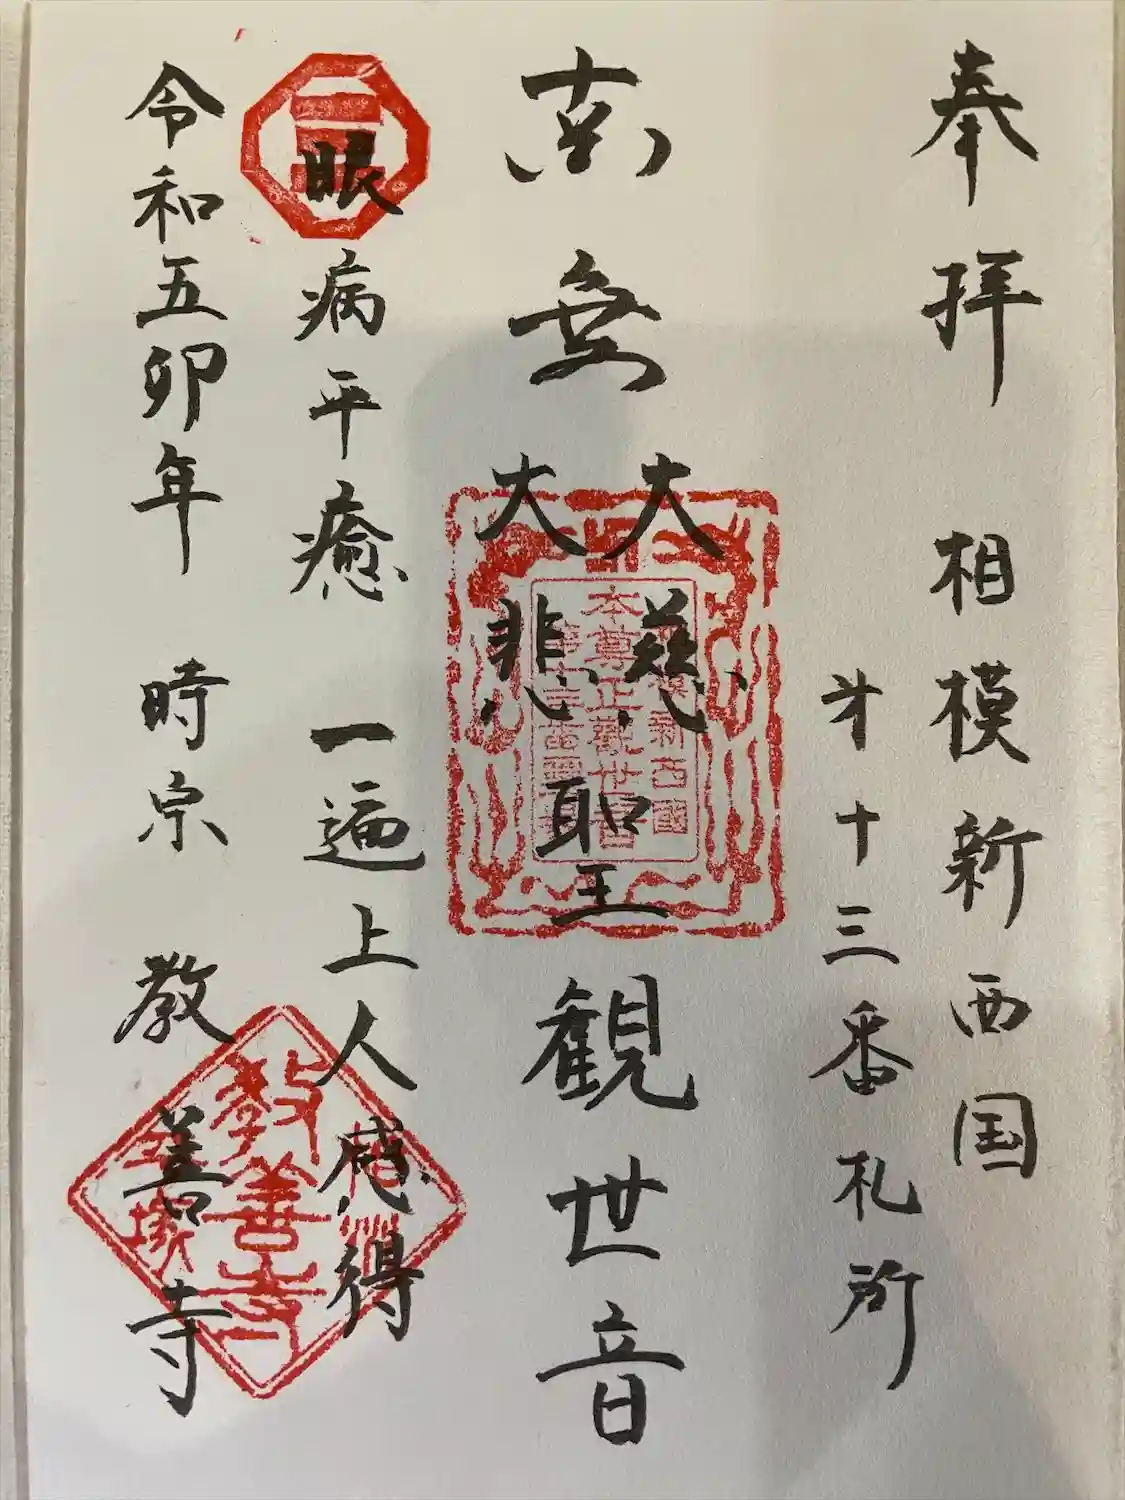 奉拝 相模新西国
才十三番札所
南無大慈大悲聖観世音
眼病平癒 一遍上人感得
令和五卯年 時宗 教善寺
本尊正観世音
教善寺